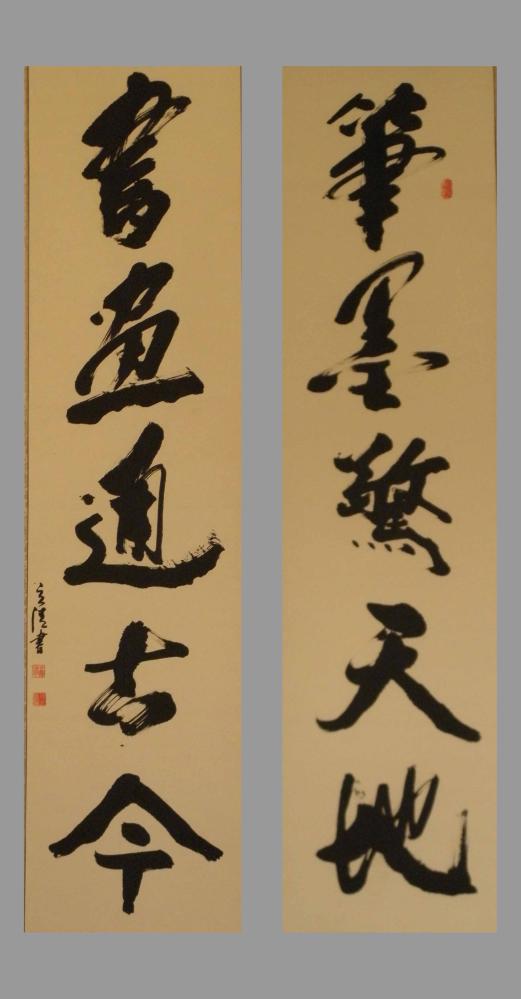 筆墨驚天地
書畫通古今